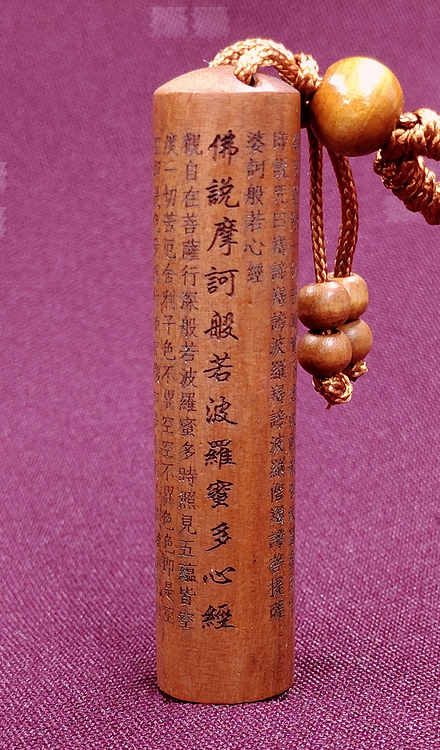 即說咒曰揭諦揭諦波羅揭諦波羅僧揭諦菩提薩
婆訶般若心經
佛說摩訶般若波羅蜜多心經
觀自在菩薩行深般若波羅蜜多時照見五蘊皆空
度一切苦厄舍利子色不異空空不異色色即是空